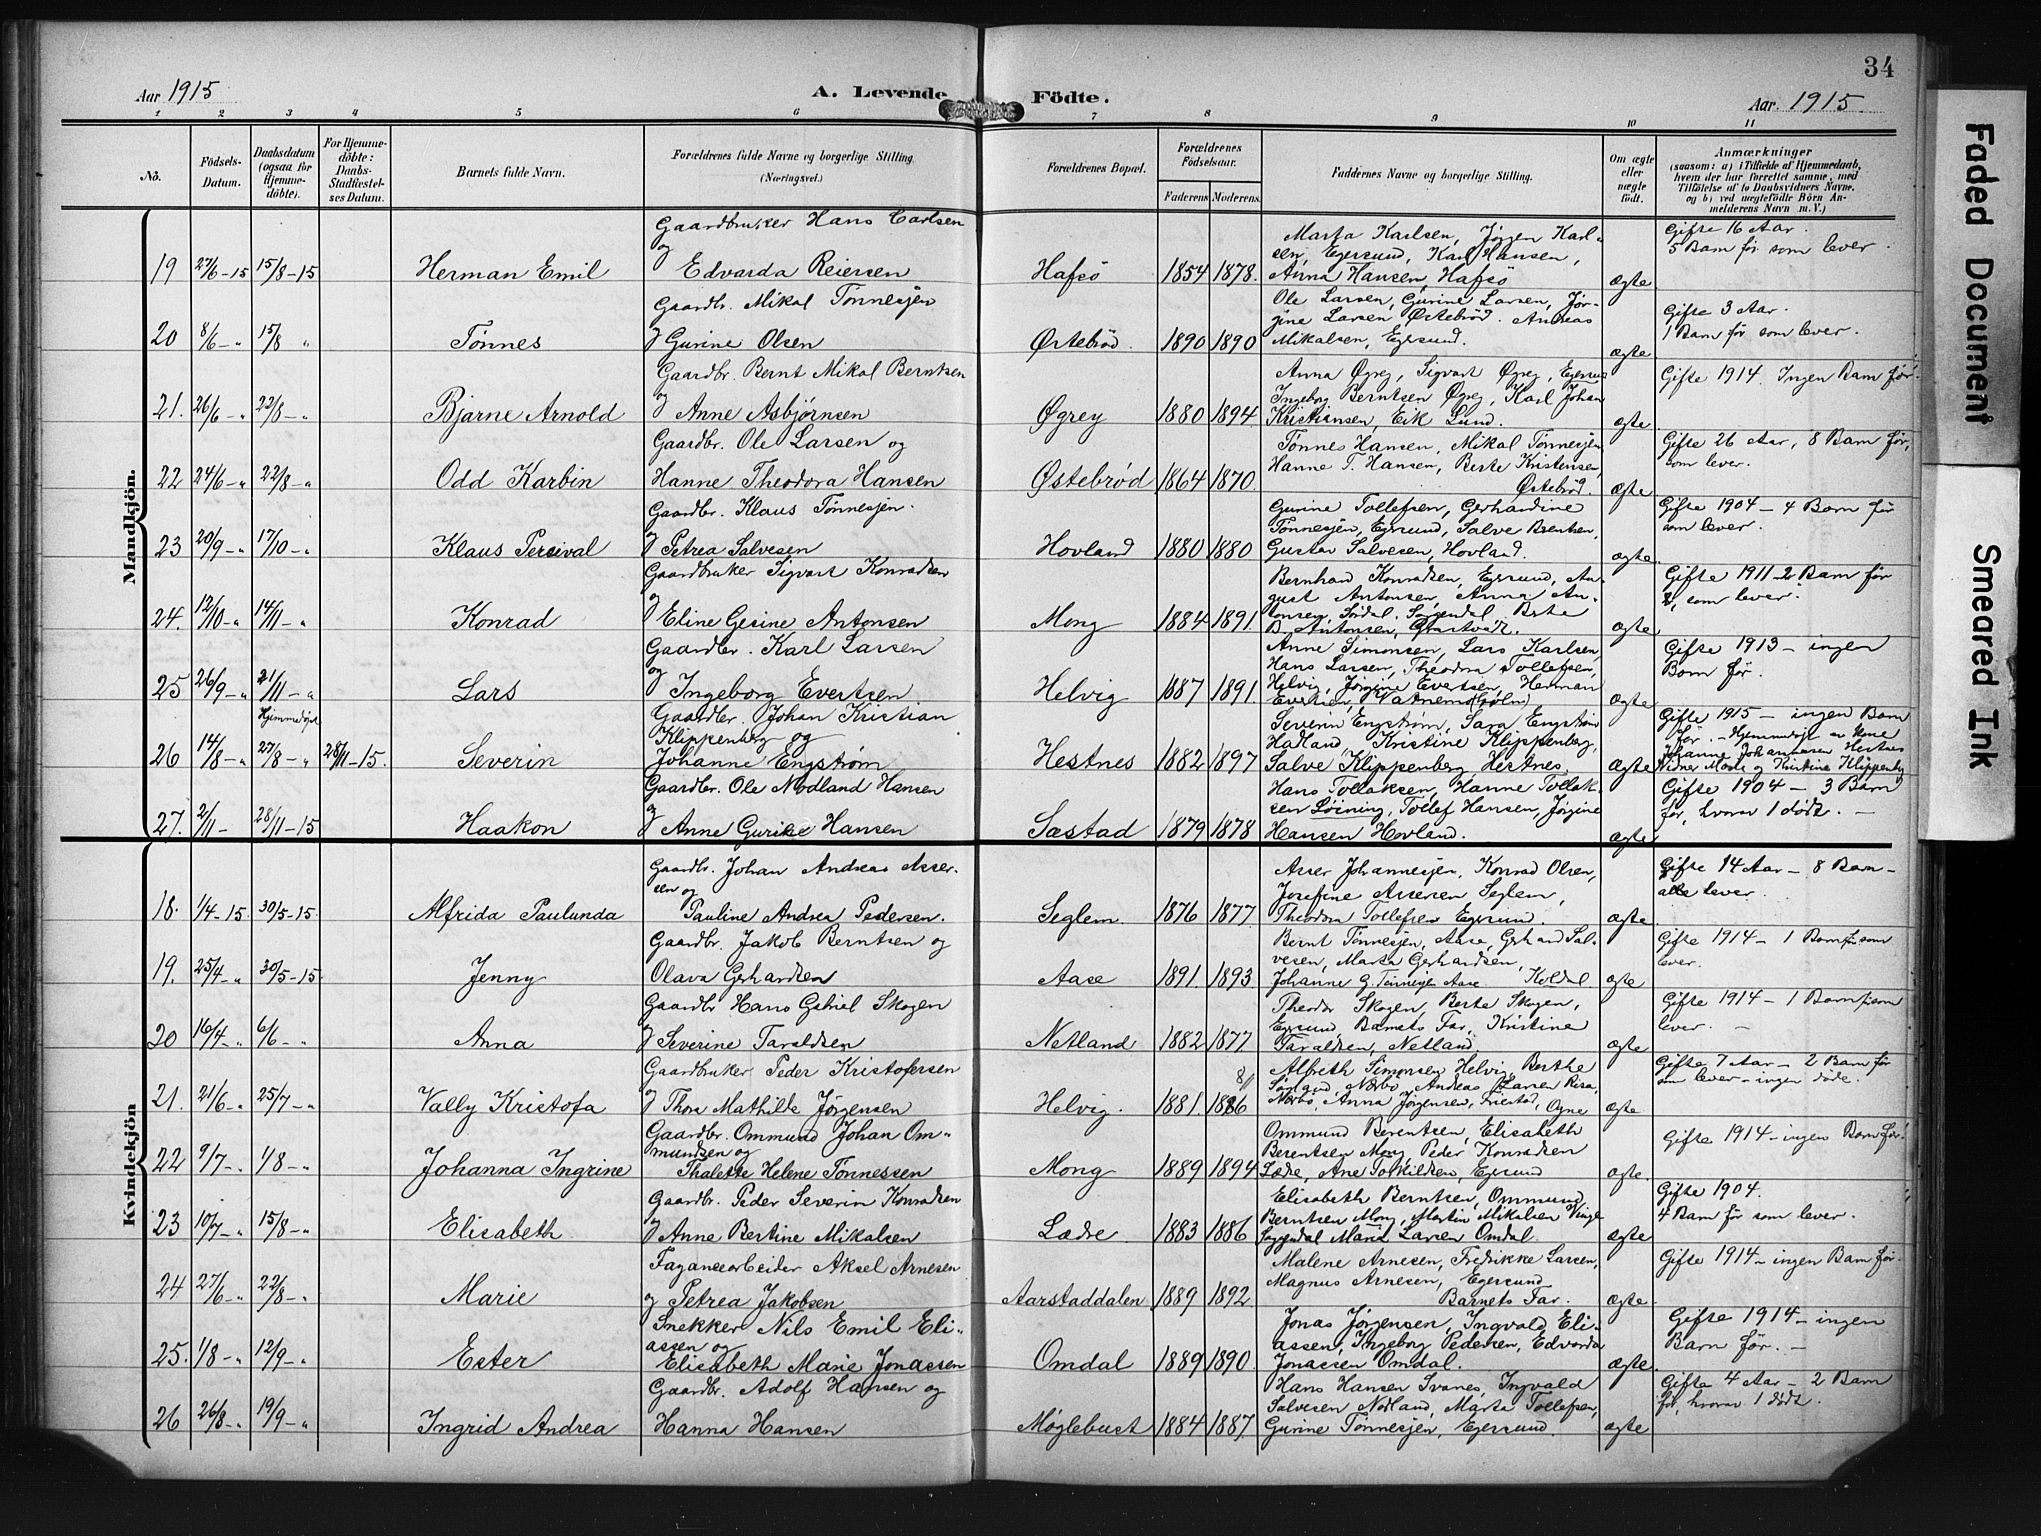 34
Aar 1915
A. Levende Födte.
Aar. 1915
1 2 3 4 5 6 7 8 9 10 11
No.
Födsels-Datum.
Daabsdatum (ogsaa for Hjemmedöbte).
For Hjemmedöbte: Daabs-Stadfæstelses Datum.
Barnets fulde Navn.
Forældrenes fulde Navne og borgerlige Stilling. (Næringsvei.)
Forældrenes Bopæl.
Forældrenes Födselsaar.
Faderens Moderens
Faddernes Navne og borgerlige Stilling.
Om ægte eller uægte født.
Anmærkninger
(saasom: a) i Tilfælde af Hjemmedaab, hvem der har forrettet samme, med Tilföielse af to Daabsvidners Navne, og b) ved uægtefödte Börn Anmelderens Navn m. V.)
Mandkjön.
19 27/6-15 15/8-15 Herman Emil Gaardbruker Hans Carlsen og Edvarda Reiersen Hafsö 1854 1878. Marta Karlsen, Jörgen Karlsen, Egersund, Karl Hansen, Anna Hansen, Hafsö ægte Gifte 16 Aar. 5 Barn før som lever.
20 8/6-" 15/8 " Tønnes Gaardbr. Mikal Tønnesjen og Gurine Olsen Østebröd. 1890 1890 Ole Larsen, Gurine Larsen, Jørgine Larsen Østebröd. Andreas Mikalsen, Egersund. ægte Gifte 3 Aar. 1 Barn før som lever.
21. 26/6-" 22/8-" Bjarne Arnold Gaardbr. Bernt Mikal Berntsen og Anne Asbjørnsen Øgrey 1880 1894 Anna Øgrey, Sigvart Øgrey, Egersund Ingeborg Berntsen Øgrey, Karl Johan Kristiansen, Eik Lund. ægte Gifte 1914. Ingen Barn før.
22 24/6-" 22/8-" Odd Karbin Gaardbr. Ole Larsen og Hanne Theodora Hansen Østebrød 1864 1870. Tønnes Hansen, Mikal Tønnesjen Hanne T. Hansen, Berte Kristensen, Østebrød. ægte Gifte 26 Aar, 8 Barn før, som lever.
23 20/9-" 17/10-" Klaus Persival Gaardbr. Klaus Tønnesjen. og Petrea Salvesen Hovland 1880 1880 Gurine Tollefsen, Gerhardine Tønnesjen, Egersund, Salve Berntsen, Gustav Salvesen, Hovland. ægte Gifte 1904 - 4 Barn før som lever.
24. 12/10-" 14/11-" Konrad Gaardbruker Sigvart Konradsen og Eline Gesine Antonsen Mong 1884 1891 Bernhard Konradsen, Egersund, August Antonsen, Anna Antonsen, Sogndal. Berte B. Antonsen, ægte Gifte 1911 - 2 Barn før som lever.
25 26/9-" 21/11-" Lars Gaardbr. Karl Larsen og Ingeborg Evertsen Helvig 1887 1891. Anne Simonsen, Lars Karlsen, Hans Larsen, Theodora Tollefsen, Helvig, Jørgine Evertsen, Herman Evertsen, ægte Gifte 1913 - ingen Barn før.
26 14/8-" Hjemmedøpt 27/8-" 28/11-15. Severin Gaardbr. Johan Kristian Klippenberg og Johanne Engstrøm Hestnes 1882 1897 Severin Engstrøm, Sara Engstrøm Kristine Klippenberg, Salve Klippenberg Hestnes. ægte Gifte 1915 - ingen Barn før. - Hjemmedøpt av Johannesen Hestnes og Kristine Klippenberg
27. 2/11- 28/11-15 Haakon Gaardbr. Ole Nodland Hansen og Anne Gurine Hansen Sæstad 1879 1878 Hans Tollaksen, Hanne Tollaksen Løining, Tollef Hansen, Jørgine Hansen Hovland. ægte Gifte 1904 - 3 Barn før, hvorav 1 dødt. -
Kvindekjön
18. 1/4-15 30/5-15. Alfrida Paulunda Gaardbr. Johan Andreas Assersen og Pauline Andrea Pedersen. Seglem 1876 1877 Asser Johannesjen, Konrad Olsen, Josefine Assersen Seglem, Theodora Tollefsen Egersund. ægte Gifte 14 Aar - 8 Barn - alle lever.
19. 25/4-" 30/5-15 Jenny Gaardbr. Jakob Berntsen og Olava Gerhardsen Aase 1891. 1893 Bernt Tønnesjen, Aase, Gerhard Salvesen, Marta Gerhardsen, Johanne G. Tønnesjen Aase. ægte Gifte 1914 - 1 Barn før som lever.
20 16/4-" 6/6-" Anna Gaardbr. Hans Gabriel Skogen og Severine Taraldsen Netland 1882 1877 Theodor Skogen, Berte Skogen, Egersund Barnets Far, Kristine Taraldsen, Netland. ægte Gifte 1914 - 1 Barn før som lever. -
21. 21/6-" 25/7-" Vally Kristofa Gaardbruker Peder Kristofersen og Thora Mathilde Jørgensen Helvig. 1881. 1886 Albreth Simonsen Helvig, Berthe Nærbø, Andreas Larsen Risa, Nærbø, Anna Jørgensen, Friestad, Ogne ægte Gifte 7 Aar - 2 Barn før som lever - ingen døde.
22 9/7-" 1/8-" Johanna Ingrine Gaardbr. Ommund Johan Ommundsen og Thalette Helene Tønnessen Mong 1889 1894 Ommund Berentsen, Elisabeth Berentsen Mong, Peder Konradsen Lædre, Ane Torkildsen, Egersund ægte Gifte 1914 - ingen Barn før.
23 10/7-" 15/8-" Elisabeth Gaardbr. Peder Severin Konradsen og Anne Bertine Mikalsen Lædre 1883 1886 Elisabeth Berntsen, Ommund Berntsen Mong, Martin Mikalsen Vinge Soggendal Maria Larsen Omdal. ægte Gifte 1904. 4 Barn før som lever.
24 27/6-" 22/8-" Marie Fayancearbeider Aksel Arnesen og Petrea Jakobsen Aarstaddalen 1889 1892 Malene Arnesen, Fredrikke Larsen, Magnus Arnesen, Egersund Barnets Far. ægte. Gifte 1914 - ingen Barn før.
25. 1/8-" 12/9-" Ester Snekker Nils Emil Eliassen og Elisabeth Marie Jonassen Omdal 1889 1890. Jonas Jørgensen, Ingvald Eliassen, Ingeborg Pedersen, Edvarda Jonassen Omdal. ægte. Gifte 1914 - ingen Barn før. -
26 26/8-" 19/9-" Ingrid Andrea Gaardbr. Adolf Hansen og Hanna Hansen Møglebust 1884 1887. Hans Hansen Svanes, Ingvald Salvesen Nodland, Marta Tollefsen, Gurine Tønnesjen, Egersund. ægte Gifte 4 Aar - 2 Barn før, hvorav 1 dødt.
Faded Document
Smeared Ink